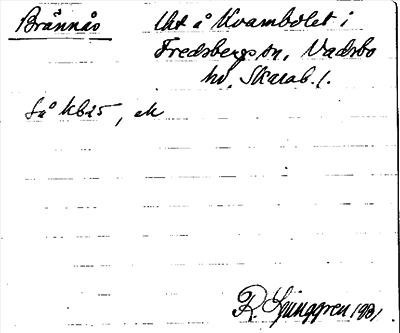 Brännås Uht å Kvambolet i
Fredsbergs sn, Vadsbo
hd, Skarab. l.
så Kb 25, ek
R. Ljunggren 1931